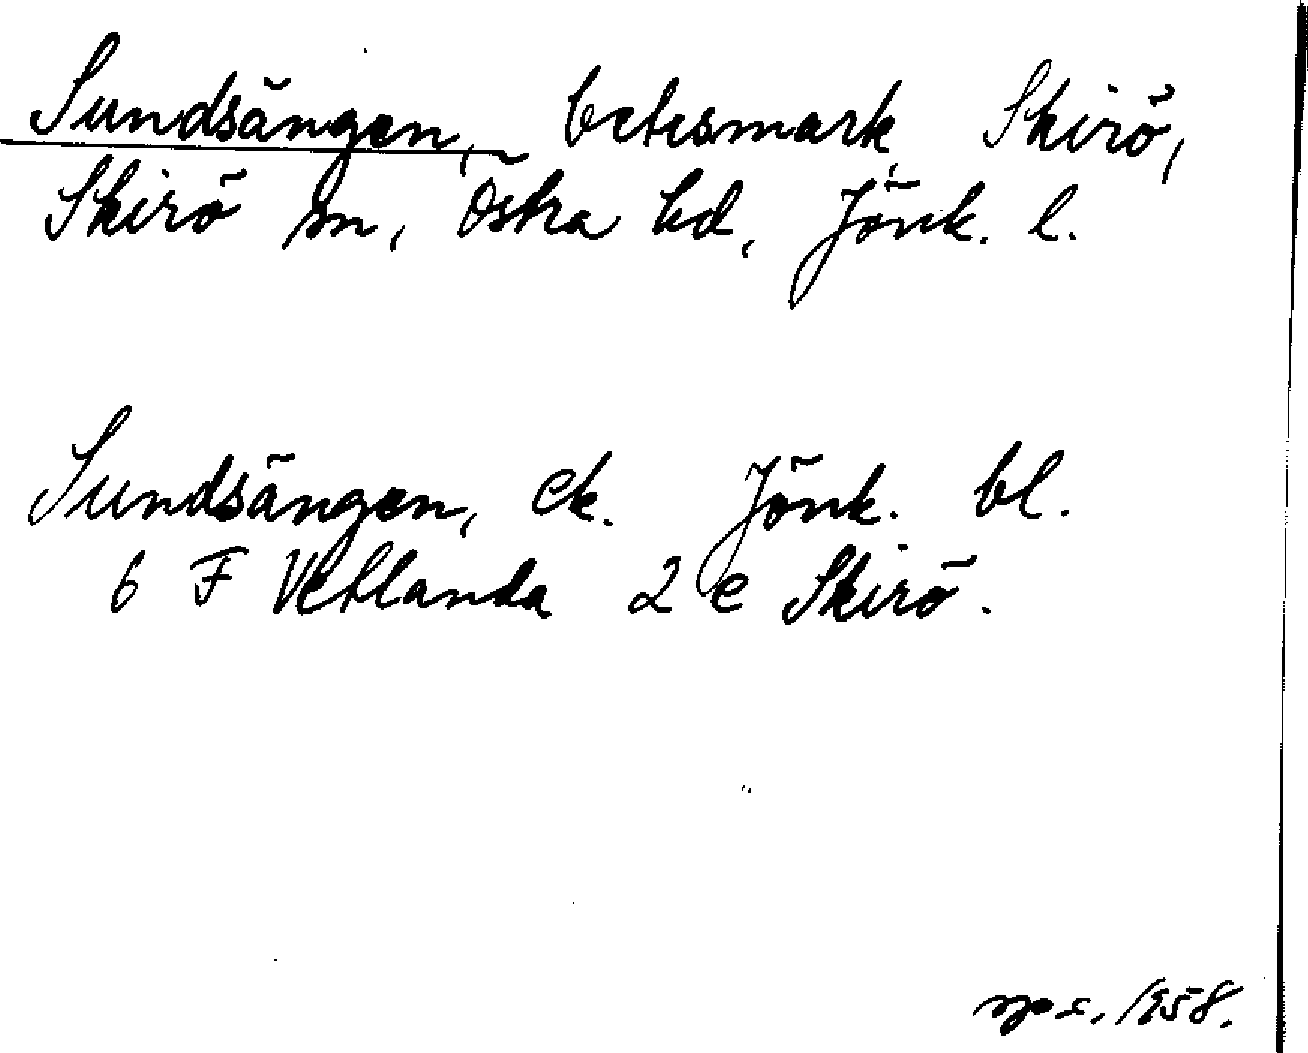 Sundsängen, betesmark, Skirö,
Skirö sn, Östra hd, Jönk. l.
Sundsängen, ek. Jönk. bl.
6 F Vetlanda 2 e Skirö.
1958.